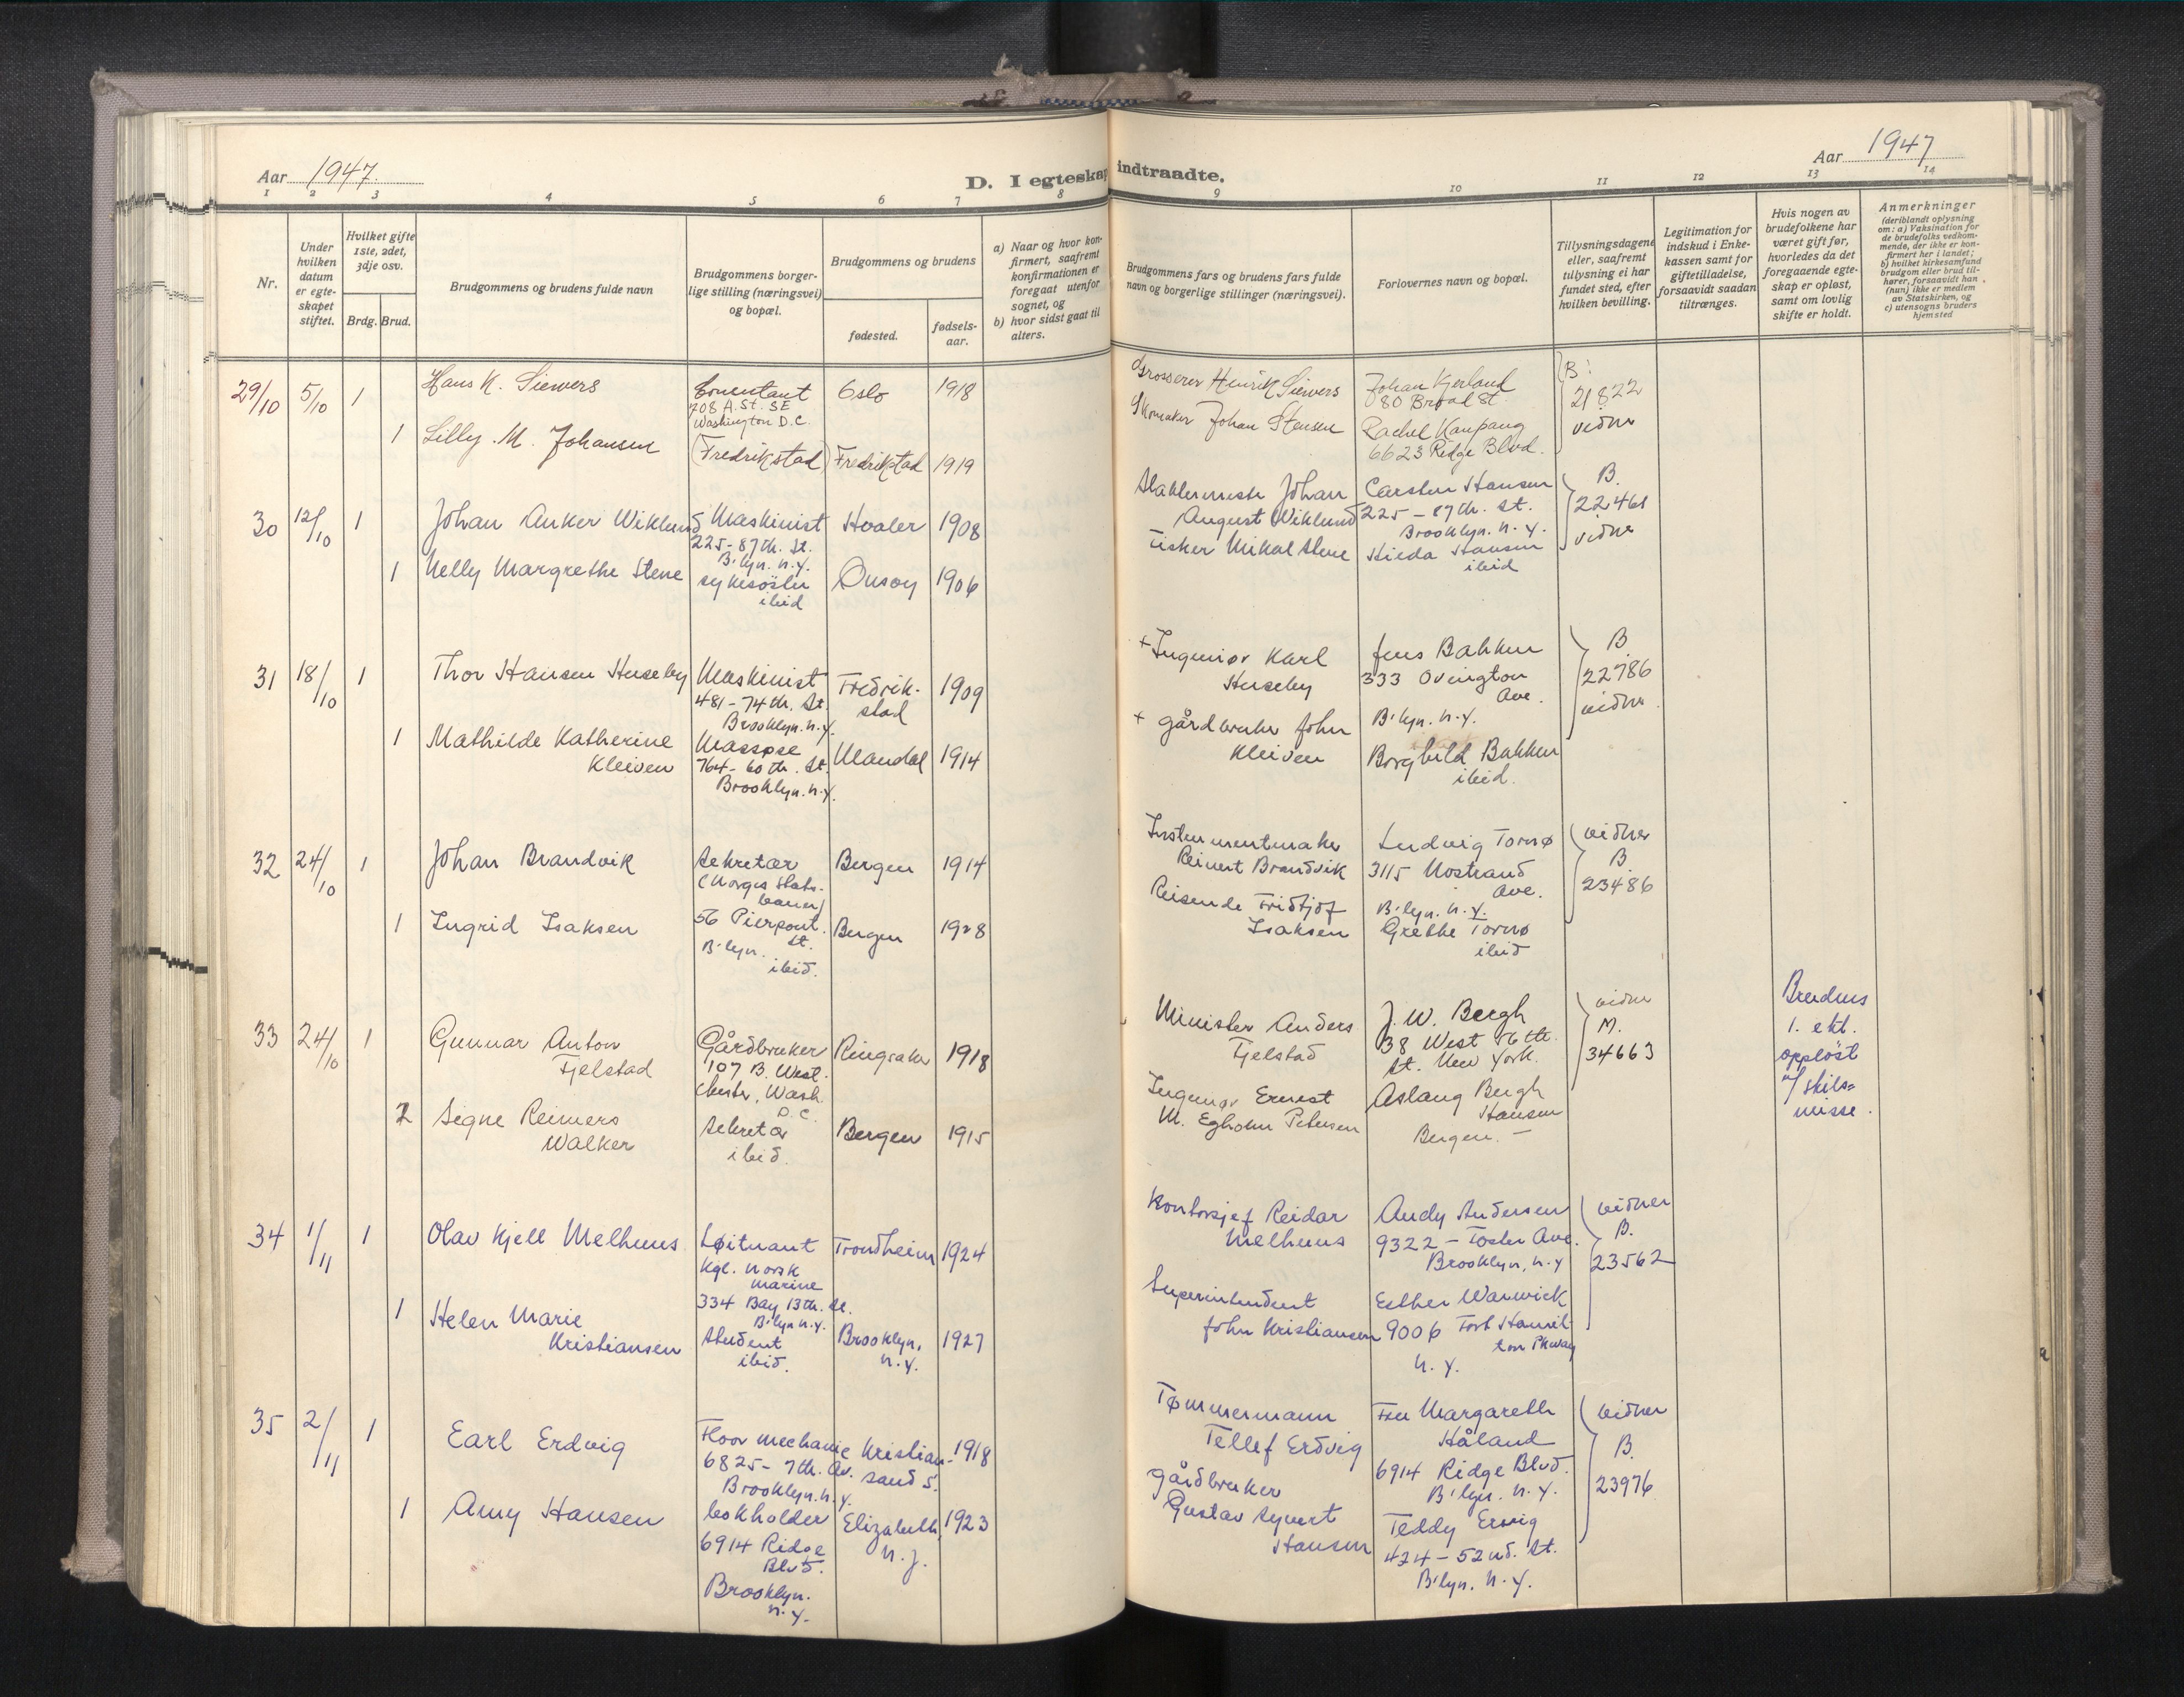 Aar 1947.
D. I egteskap indtraadte.
Aar 1947
1 2 3 4 5 6 7 8 9 10 11 12 13 14
Nr.
Under
hvilken
datum
er egte-
skapet
stiftet.
Hvilket gifte
1ste, 2det,
3dje osv.
Brdg. Brud.
Brudgommens og brudens fulde navn
Brudgommens borger-
lige stilling (næringsvei)
og bopæl.
Brudgommens og brudens
fødested.
fødsels-
aar.
a) Naar og hvor kon-
firmert, saafremt
konfirmationen er
foregaat utenfor
sognet, og
b) hvor sidst gaat til
alters.
Brudgommens fars og brudens fars fulde
navn og borgerlige stillinger (næringsvei).
Forlovernes navn og bopæl.
Tillysningsdagene
eller, saafremt
tillysning ei har
fundet sted, efter
hvilken bevilling.
Legitimation for
indskud i Enke-
kassen samt for
giftetilladelse,
forsaavidt saadan
tiltrænges.
Hvis nogen av
brudefolkene har
været gift før,
hvorledes da det
foregaaende egte-
skap er opløst,
samt om lovlig
skifte er holdt.
Anmerkninger
(deriblandt oplysning
om: a) Vaksination for
de brudefolks vedkom-
mende, der ikke er kon-
firmert her i landet;
b) hvilket kirkesamfund
brudgom eller brud til-
hører, forsaavidt han
(hun) ikke er medlem
av Statskirken, og
c) utensogns bruders
hjemsted
29/10 5/10 1
Hans K. Siewers
708 A. St. SE
Washington D.C.
Oslo 1918
1 Lilly M. Johansen
(Fredrikstad) Fredrikstad 1919
Grosserer Henrik Siewers
Skomaker Johan Stensen
Johan Kjerland
80 Broad St.
Rachel Kaupang
6623 Ridge Blvd.
B.
21822
vidner
30 12/10 1
Johan Anker Wiklund
Maskinist
225 - 87th. St.
B'lyn. N.Y.
Hvaler 1908
1 Nelly Margrethe Stene
sykesöster
ibid
Onsoy 1906
Johan
August Wiklund
Fisker Mikal Stene
Carsten Hansen
225 - 87th. St.
Brooklyn. N.Y.
Hilda Hansen
ibid
B.
22461
vidner
31 18/10 1
Thor Hansen Huseby
Maskinist
481 - 74th. St.
Brooklyn. N.Y.
Fredrik-
stad
1909
1 Mathilde Katherine
Kleiven
Massøse
764 - 60th. St.
Brooklyn. N.Y.
Mandal 1914
+ Ingeniør Karl
Huseby
+ gårdbruker John
Kleiven
Jens Bakken
333 Ovington
Ave.
B'lyn. N.Y.
Borghild Bakken
ibid.
B.
22786
vidner.
32 24/10 1
Johan Brandvik
Sekretær
(Norges Stats-
baner)
56 Pierpont
St.
B'lyn.
Bergen 1914
1 Ingrid Isaksen
ibid.
Bergen 1928
Instrumentmaker
Reinert Brandvik
Reisende Fridtjof
Isaksen
Ludvig Tornø
3115 Nostrand
Ave.
B'lyn. N.Y.
Grethe Tornø
ibid
vidner
B.
23486
33 24/10 1
Gunnar Anton
Fjelstad
Gårdbruker
107 B. West.
chester, Wash.
D.C.
Ringsaker 1918
2 Signe Reimers
Walker
Sekretær
ibid.
Bergen 1915
Minister Anders
Fjelstad
Ingeniør Ernest
M. Egholm Petersen
J. W. Bergh
38 West 76th.
St. New York.
Aslaug Bergh
Hansen
Bergen. —
vidner
M.
34663
Brudens
1. ekt.
oppløst
v/ skils=
misse.
34 1/11 1
Olav Kjell Melhuus
Løitnant
Kgl. norsk
marine
334 Bay 13th. St.
B'lyn N.Y.
Trondheim 1924
1 Helen Marie
Kristiansen
Student
ibid.
Brooklyn,
N.Y.
1927
Kontorsjef Reidar
Melhuus
Superintendent
John Kristiansen
Andy Andersen
9322 - Foster Ave.
Brooklyn, N.Y
Esther Warwick
9006 Fort Hamil-
ton Pkway
N.Y.
vidner
B.
23562
35 2/11 1
Earl Erdvig
Floor mechanic
6825 - 7th. Av.
Brooklyn. N.Y.
Kristian-
sand S.
1918
1 Amy Hansen
bokholder
6914 Ridge
Blvd.
Brooklyn.
N.Y.
Elizabeth,
N.J.
1923
Tømmermann
Tellef Erdvig
gårdbruker
Gustav Syvert
Hansen
Fru Margareth
Håland
6914 Ridge Blvd.
B'lyn. N.Y.
Teddy Ervig
424 - 52nd. St.
B'lyn. N.Y.
vidner
B.
23976